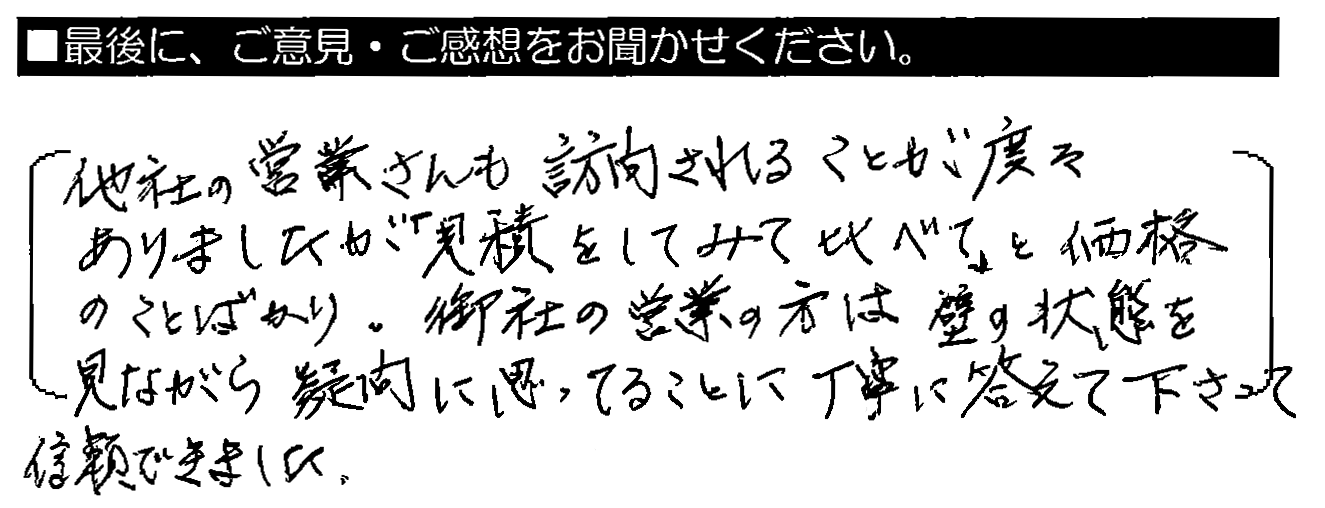 ■最後に、ご意見・ご感想をお聞かせください。
他社の営業さんも訪問されることが度々
ありましたが「見積をしてみて比べて」と価格
のことばかり。御社の営業の方は壁の状態を
見ながら疑問に思ってることに丁寧に答えて下さって
信頼できました。